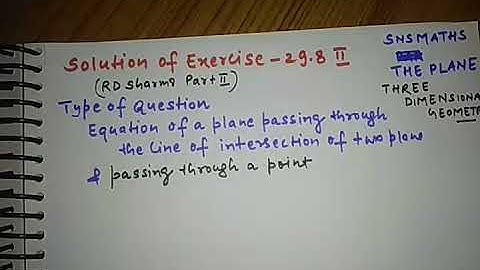 Solution of Exercise - 29.8 II
(RD Sharma Part II)
Type of Question
Equation of a plane passing through
the line of intersection of two plane
& passing through a point
SNS MATHS
THE PLANE
THREE
DIMENSIONA
GEOMET